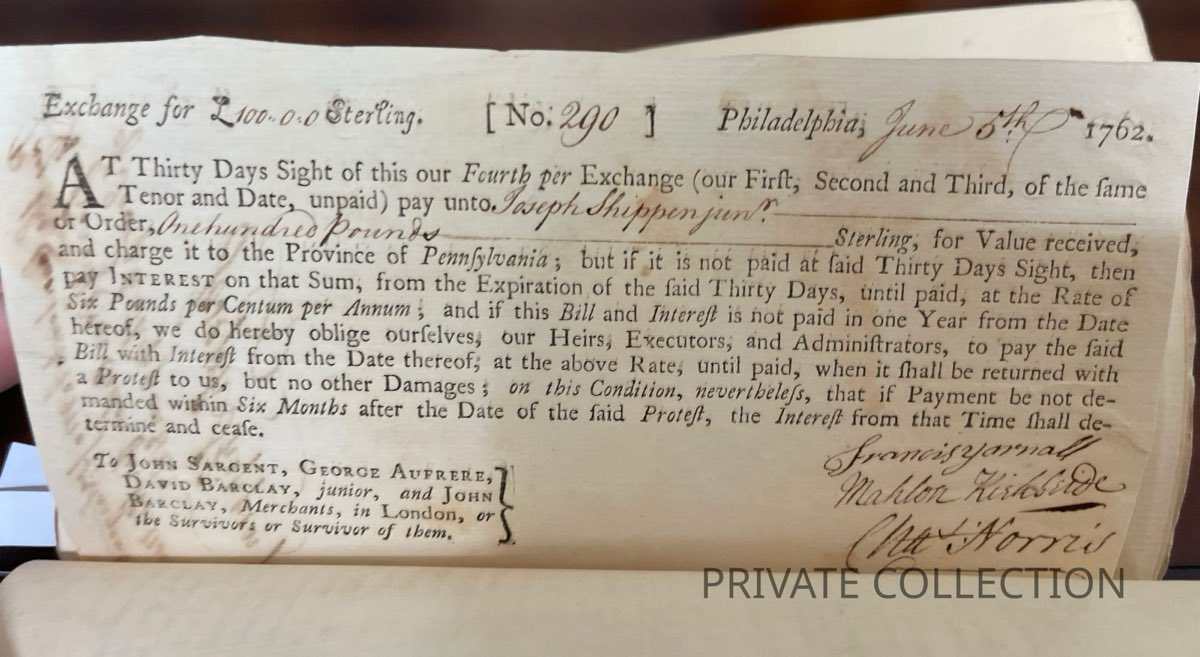 Exchange for £100..0..0 Sterling. [ No: 290 ] Philadelphia, June 5th 1762.
AT Thirty Days Sight of this our Fourth per Exchange (our Firſt, Second and Third, of the ſame
Tenor and Date, unpaid) pay unto Joseph Shippen junr.
or Order, One hundred Pounds Sterling, for Value received,
and charge it to the Province of Pennſylvania; but if it is not paid at ſaid Thirty Days Sight, then
pay INTEREST on that Sum, from the Expiration of the ſaid Thirty Days, until paid, at the Rate of
Six Pounds per Centum per Annum; and if this Bill and Intereſt is not paid in one Year from the Date
hereof, we do hereby oblige ourſelves, our Heirs, Executors, and Adminiſtrators, to pay the ſaid
Bill with Intereſt from the Date thereof, at the above Rate, until paid, when it ſhall be returned with
a Proteſt to us, but no other Damages; on this Condition, nevertheleſs, that if Payment be not de-
manded within Six Months after the Date of the ſaid Proteſt, the Intereſt from that Time ſhall de-
termine and ceaſe.
To JOHN SARGENT, GEORGE AUFRERE,
DAVID BARCLAY, junior, and JOHN
BARCLAY, Merchants, in London, or
the Survivors or Survivor of them.
Francis Yarnall
Mahlon Kirkbride
Chas Norris
PRIVATE COLLECTION